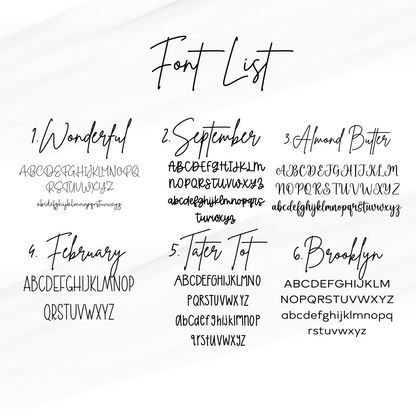 Font List
1. Wonderful
ABCDEFGHIJKLMNOPQ
RSTUVWXYZ
abcdefghijklmnopqrstuvwxyz
2. September
ABCDEFGHIJKLM
NOPQRSTUVWXYZ
abcdefghijklmnopqrs
tuvwxyz
3. Almond Butter
ABCDEFGHIJKLM
NOPQRSTUVWXYZ
abcdefghijklmnopqrstuvwxyz
4. February
ABCDEFGHIJKLMNOP
QRSTUVWXYZ
5. Tater Tot
ABCDEFGHIJKLMNO
PQRSTUVWXYZ
abcdefghijklmnop
qrstuvwxyz
6. Brooklyn
ABCDEFGHIJKLM
NOPQRSTUVWXYZ
abcdefghijklmnopq
rstuvwxyz